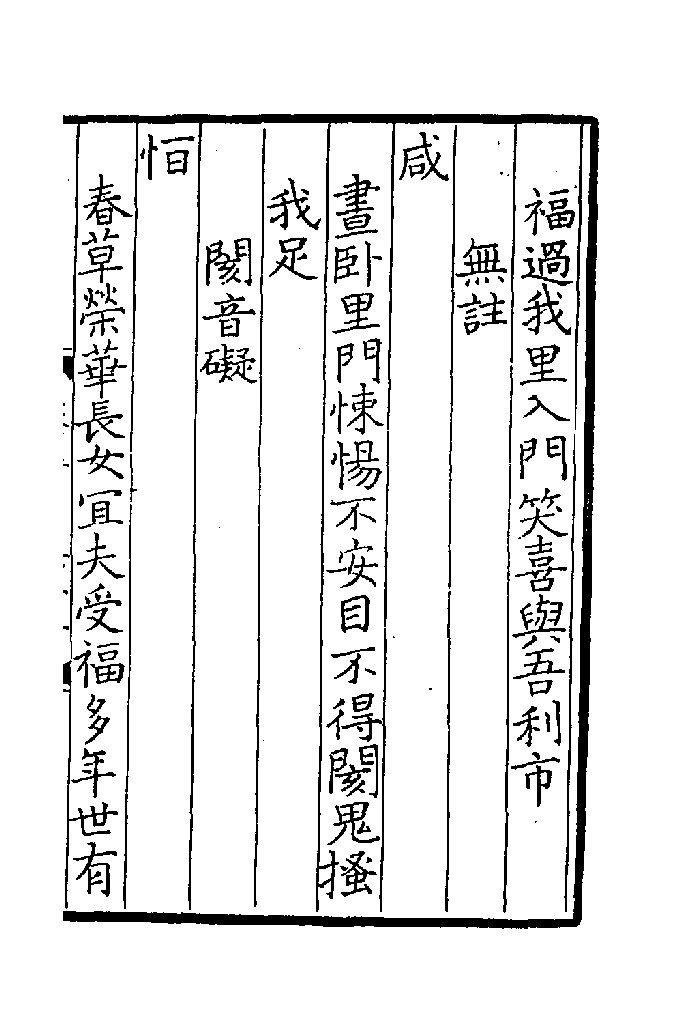 福過我里入門笑喜與吾利市
無註
咸
晝卧里門悚惕不安目不得閡鬼搔
我足
閡音礙
恒
春草榮華長女冝夫受福多年世有